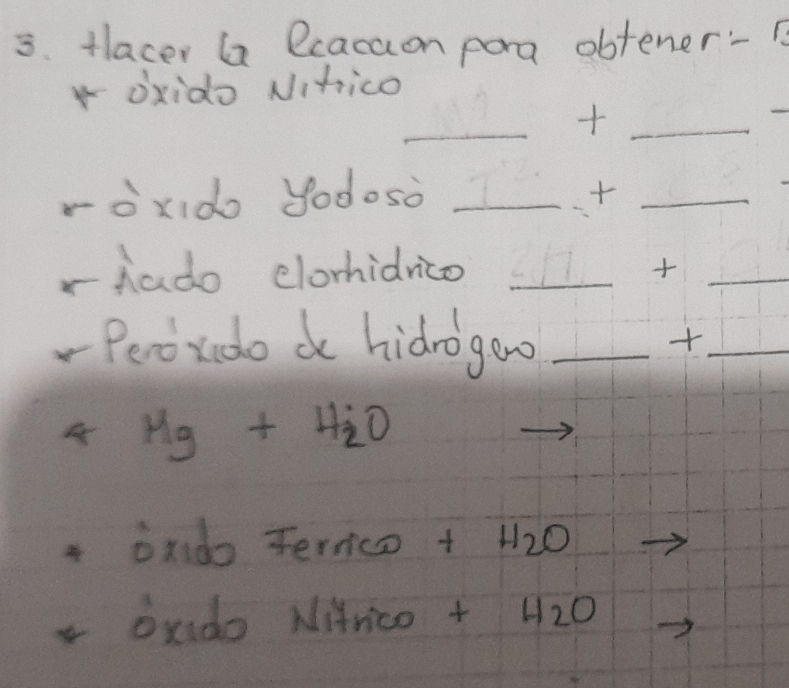 3. Hacer la Reacción para obtener:-
* óxido Nitrico
____ + ____ -
- óxido Yodoso ____ + ____ -
- Ácido clorhidrico 2H ____ + ____
- Peróxido de hidrógeno ____ + ____
* Mg + H2O →
* óxido Ferrico + H2O →
* óxido Nitrico + H2O →